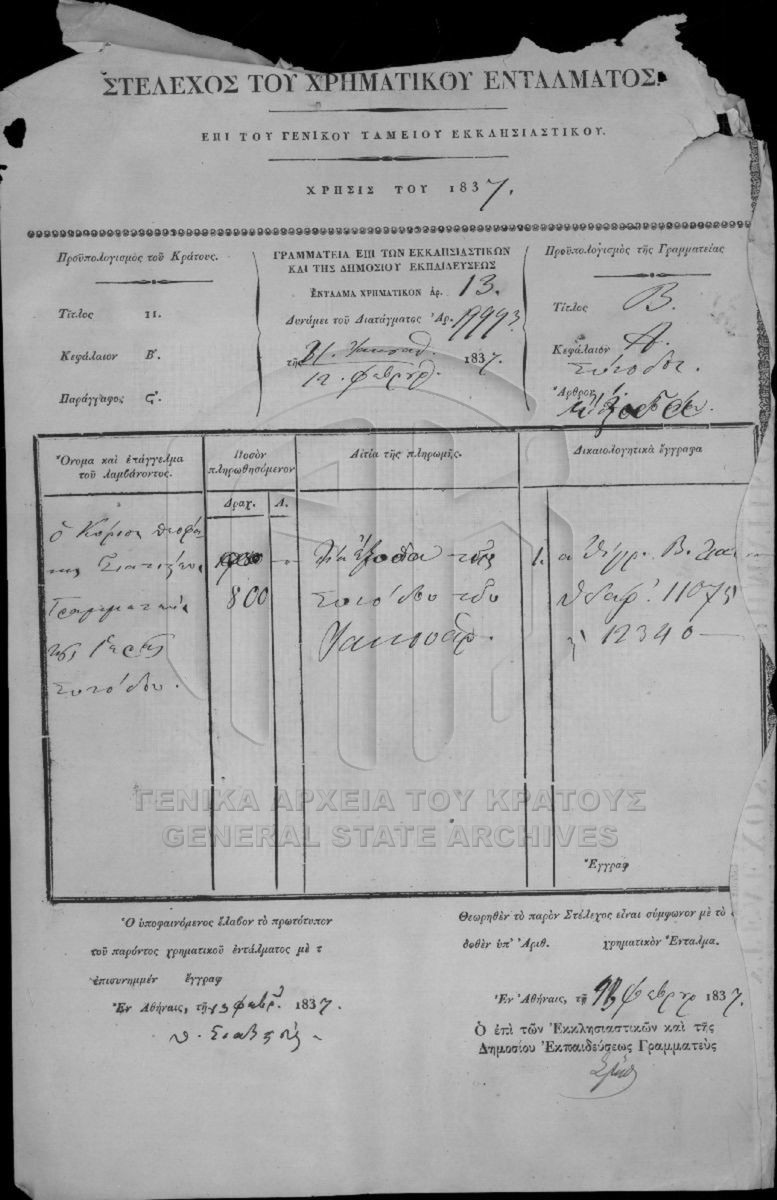 ΣΤΕΛΕΧΟΣ ΤΟΥ ΧΡΗΜΑΤΙΚΟΥ ΕΝΤΑΛΜΑΤΟΣ.
ΕΠΙ ΤΟΥ ΓΕΝΙΚΟΥ ΤΑΜΕΙΟΥ ΕΚΚΛΗΣΙΑΣΤΙΚΟΥ.
ΧΡΗΣΙΣ ΤΟΥ 1837.
Προϋπολογισμὸς τοῦ Κράτους.
Τίτλος II.
Κεφάλαιον Β'.
Παράγγαφος ς'.
ΓΡΑΜΜΑΤΕΙΑ ΕΠΙ ΤΩΝ ΕΚΚΛΗΣΙΑΣΤΙΚΩΝ
ΚΑΙ ΤΗΣ ΔΗΜΟΣΙΟΥ ΕΚΠΑΙΔΕΥΣΕΩΣ
ΕΝΤΑΛΜΑ ΧΡΗΜΑΤΙΚΟΝ ἀρ. 13.
Δυνάμει τοῦ Διατάγματος Ἀρ.
τῆς 1837.
12. φεβρουαρ.
Προϋπολογισμὸς τῆς Γραμματείας
Τίτλος Β.
Κεφάλαιον Α.
Σύνοδος.
Ἄρθρον
Ὄνομα καὶ ἐπάγγελμα
τοῦ λαμβάνοντος.
Ποσὸν
πληρωθησόμενον
Αἰτία τῆς πληρωμῆς.
Δικαιολογητικὰ ἔγγραφα
Δραχ. Λ.
ὁ Κύριος
Γραμματεὺς
τῆς Ἱερᾶς
Συνόδου.
800
διὰ ἔξοδα τῆς
Συνόδου τοῦ
Ἰανουαρ.
1.
11075
12340
Ἔγγραφ
Ὁ ὑποφαινόμενος ἔλαβον τὸ πρωτότυπον
τοῦ παρόντος χρηματικοῦ ἐντάλματος μὲ τ
ἐπισυνημμέν ἔγγραφ
Ἐν Ἀθήναις, τῇ 13 φεβρ. 1837.
Θεωρηθὲν τὸ παρὸν Στέλεχος εἶναι σύμφωνον μὲ τὸ
δοθὲν ὑπ' Ἀριθ. χρηματικὸν Ἔνταλμα.
Ἐν Ἀθήναις, τῇ φεβρρ 1837.
Ὁ ἐπὶ τῶν Ἐκκλησιαστικῶν καὶ τῆς
Δημοσίου Ἐκπαιδεύσεως Γραμματεὺς
ΓΕΝΙΚΑ ΑΡΧΕΙΑ ΤΟΥ ΚΡΑΤΟΥΣ
GENERAL STATE ARCHIVES